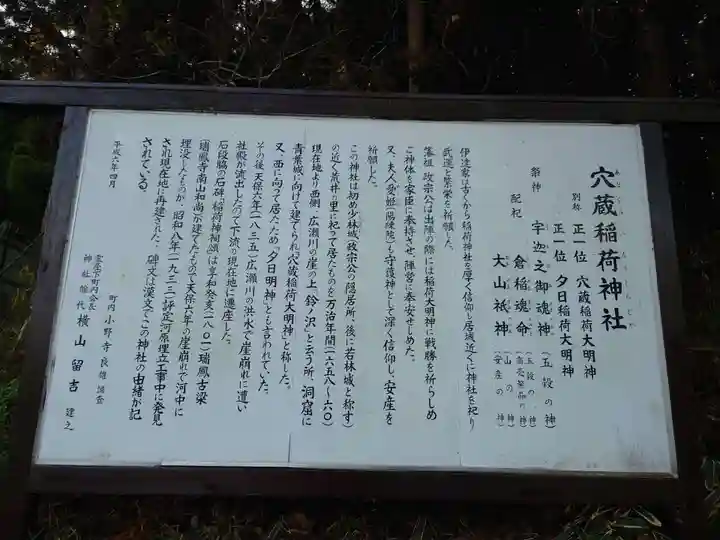 穴蔵稲荷神社
別称 正一位 穴蔵稲荷大明神
正一位 夕日稲荷大明神
祭神 宇迦之御魂神(五穀の神)
配祀 倉稲魂命
大山祇神(山の神)(安産の神)
伊達家は古くから稲荷神社を厚く信仰し居城近くに神社を祀り
武運と繁栄を祈願した。
藩祖 政宗公は出陣の際には稲荷大明神に戦勝を祈らしめ
ご神体を家臣に奉持させ、陣営に奉安せしめた。
又、夫人(愛姫・陽徳院)も守護神として深く信仰し、安産を
祈願した。
この神社は初め少林城(政宗公の隠居所、後に若林城と称す)
の近く荒井の里に祀って居たものを万治年間(一六五八~六〇)
現在地より西側、広瀬川の崖の上「鈴ノ沢」と云う所、洞窟に
青葉城に向けて建てられ「穴蔵稲荷大明神」と称した。
又、西に向って居たため「夕日明神」とも言われていた。
その後、天保六年(一八三五)広瀬川の洪水で崖崩れに遭い
社殿が流出したので下流の現在地に遷座した。
石段脇の石碑「稲荷神祠頌」は享和癸亥(一八〇一)瑞鳳古梁
(瑞鳳寺南山和尚)が建てたもので天保六年の崖崩れで河中に
埋没したものが、昭和八年(一九三三)評定河原埋立工事中に発見
され現在地に再建された。碑文は漢文でこの神社の由緒が記
されている。
平成六年四月
町内 小野寺良雄 調査
霊屋下町内会長
神社総代 横山留吉 建之